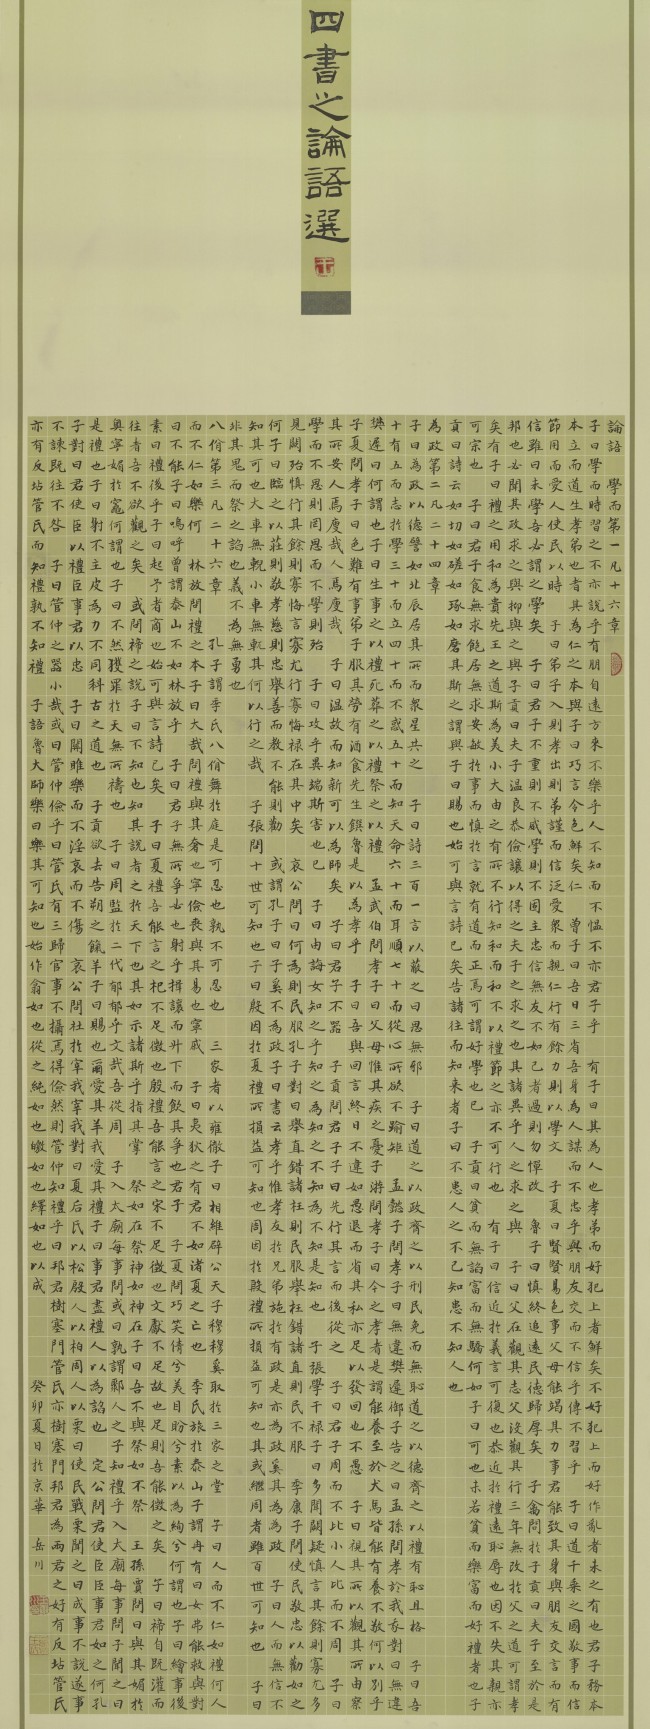 四書之論語選
論語 學而第一凡十六章
子曰學而時習之不亦說乎有朋自遠方來不樂乎人不知而不慍不亦君子乎 有子曰其為人也孝弟而好犯上者鮮矣不好犯上而好作亂者未之有也君子務本
本立而道生孝弟也者其為仁之本與子曰巧言令色鮮矣仁 曾子曰吾日三省吾身為人謀而不忠乎與朋友交而不信乎傳不習乎 子曰道千乘之國敬事而信
節用而愛人使民以時 子曰弟子入則孝出則弟謹而信泛愛衆而親仁行有餘力則以學文 子夏曰賢賢易色事父母能竭其力事君能致其身與朋友交言而有
信雖曰未學吾必謂之學矣 子曰君子不重則不威學則不固主忠信無友不如己者過則勿憚改 曾子曰慎終追遠民德歸厚矣 子禽問於子貢曰夫子至於是
邦也必聞其政求之與抑與之與子貢曰夫子温良恭儉讓以得之夫子之求之也其諸異乎人之求之與 子曰父在觀其志父没觀其行三年無改於父之道可謂孝
矣有子曰禮之用和為貴先王之道斯為美小大由之有所不行知和而和不以禮節之亦不可行也 有子曰信近於義言可復也恭近於禮遠恥辱也因不失其親亦
可宗也 子曰君子食無求飽居無求安敏於事而慎於言就有道而正焉可謂好學也已 子貢曰貧而無諂富而無驕何如子曰可也未若貧而樂富而好禮者也子
貢曰詩云如切如磋如琢如磨其斯之謂與子曰賜也始可與言詩已矣告諸往而知来者子曰不患人之不己知患不知人也
為政第二凡二十四章
子曰為政以德譬如北辰居其所而衆星共之 子曰詩三百一言以蔽之曰思無邪 子曰道之以政齊之以刑民免而無恥道之以德齊之以禮有恥且格 子曰吾
十有五而志於學三十而立四十而不惑五十而知天命六十而耳順七十而從心所欲不踰矩 孟懿子問孝子曰無違樊遲御子告之曰孟孫問孝於我我對曰無違
樊遲曰何謂也子曰生事之以禮死葬之以禮祭之以禮 孟武伯問孝子曰父母惟其疾之憂子游問孝子曰今之孝者是謂能養至於犬馬皆能有養不敬何以别乎
子夏問孝子曰色難有事弟子服其勞有酒食先生饌曾是以為孝乎 子曰吾與回言終日不違如愚退而省其私亦足以發回也不愚 子曰視其所以觀其所由察
其所安人焉廋哉人焉廋哉 子曰温故而知新可以為師矣 子曰君子不器 子貢問君子子曰先行其言而後從之 子曰君子周而不比小人比而不周 子曰
學而不思則罔思而不學則殆 子曰攻乎異端斯害也已 子曰由誨女知之乎知之為知之不知為不知是知也 子張學干禄子曰多聞闕疑慎言其餘則寡尤多
見闕殆慎行其餘則寡悔言寡尤行寡悔禄在其中矣 哀公問曰何為則民服孔子對曰舉直錯諸枉則民服舉枉錯諸直則民不服 季康子問使民敬忠以勸如之
何子曰臨之以莊則敬孝慈則忠舉善而教不能則勸 或謂孔子曰子奚不為政子曰書云孝乎惟孝友於兄弟施於有政是亦為政奚其為為政 子曰人而無信不
知其可也大車無輗小車無軏其何以行之哉 子張問十世可知也子曰殷因於夏禮所損益可知也周因於殷禮所損益可知也其或繼周者雖百世可知也 子曰
非其鬼而祭之諂也義不為無勇也
八佾第三凡二十六章 孔子謂季氏八佾舞於庭是可忍也孰不可忍也 三家者以雍徹子曰相維辟公天子穆穆奚取於三家之堂 子曰人而不仁如禮何人
而不仁如樂何 林放問禮之本子曰大哉問禮與其奢也寧儉喪與其易也寧戚 子曰夷狄之有君不如諸夏之亡也 季氏旅於泰山子謂冉有曰女弗能救與對
曰不能子曰嗚呼曾謂泰山不如林放乎 子曰君子無所爭必也射乎揖讓而升下而飲其爭也君子 子夏問巧笑倩兮美目盼兮素以為絢兮何謂也子曰繪事後
素曰禮後乎子曰起予者商也始可與言詩已矣 子曰夏禮吾能言之杞不足徵也殷禮吾能言之宋不足徵也文獻不足故也足則吾能徵之矣 子曰禘自既灌而
往者吾不欲觀之矣 或問禘之說子曰不知也知其說者之於天下也其如示諸斯乎指其掌 祭如在祭神如神在子曰吾不與祭如不祭 王孫賈問曰與其媚於
奥寧媚於竈何謂也子曰不然獲罪於天無所禱也 子曰周監於二代郁郁乎文哉吾從周 子入太廟每事問或曰孰謂鄹人之子知禮乎入太廟每事問子聞之曰
是禮也子曰射不主皮為力不同科古之道也 子貢欲去告朔之餼羊子曰賜也爾愛其羊我愛其禮子曰事君盡禮人以為諂也 定公問君使臣臣事君如之何孔
子對曰君使臣以禮臣事君以忠 子曰關雎樂而不淫哀而不傷 哀公問社於宰我宰我對曰夏后氏以松殷人以柏周人以栗曰使民戰栗聞之曰成事不說遂事
不諫既往不咎 子曰管仲之器小哉或曰管仲儉乎曰管氏有三歸官事不攝焉得儉然則管仲知禮乎曰邦君樹塞門管氏亦樹塞門邦君為兩君之好有反坫管氏
亦有反坫管氏而知禮孰不知禮 子語魯大師樂曰樂其可知也始作翕如也從之純如也皦如也繹如也以成
癸卯夏日於京華 岳川